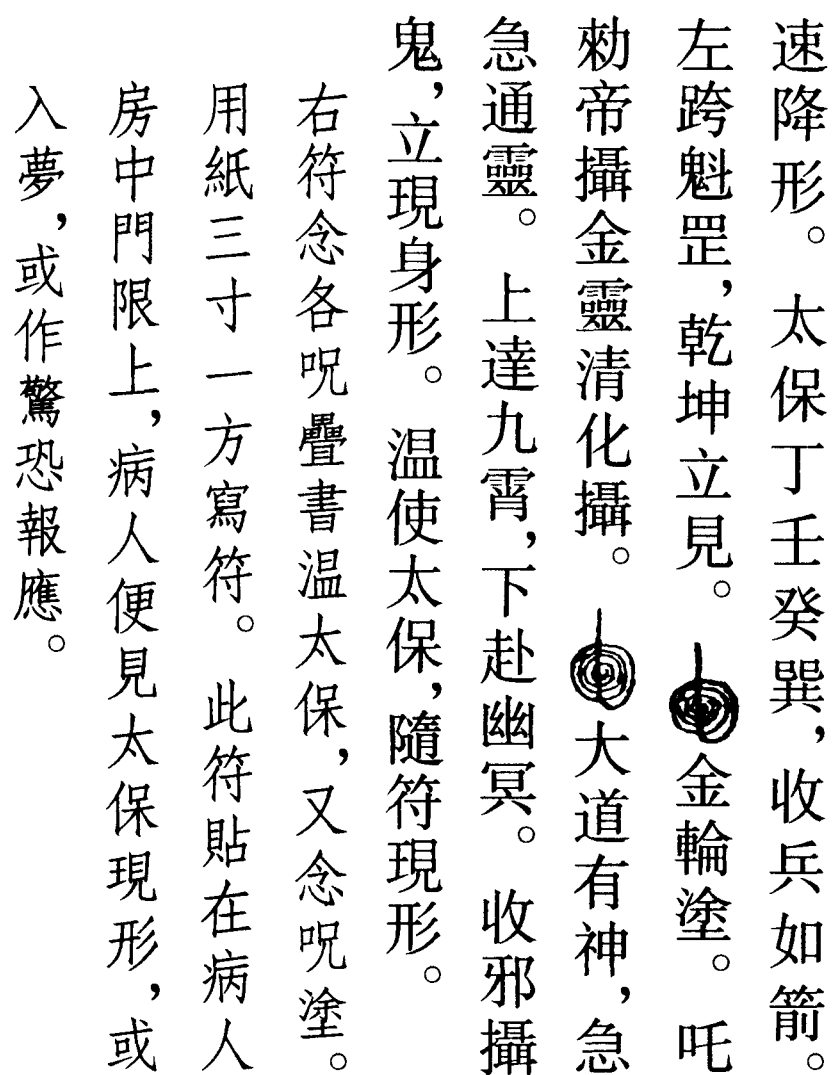 速降形。　太保丁壬癸巽，收兵如箭。
左跨魁罡，乾坤立見。　金輪塗。　吒
勑帝攝金靈清化攝。　大道有神，急
急通靈。　上達九霄，下赴幽冥。　收邪攝
鬼，立現身形。　温使太保，隨符現形。
右符念各呪疊書温太保，又念呪塗。
用紙三寸一方寫符。　此符貼在病人
房中門限上，病人便見太保現形，或
入夢，或作驚恐報應。